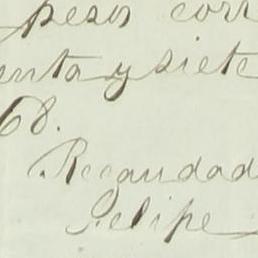 pesos corr
enta y siete
68.
Recaudad
Felipe